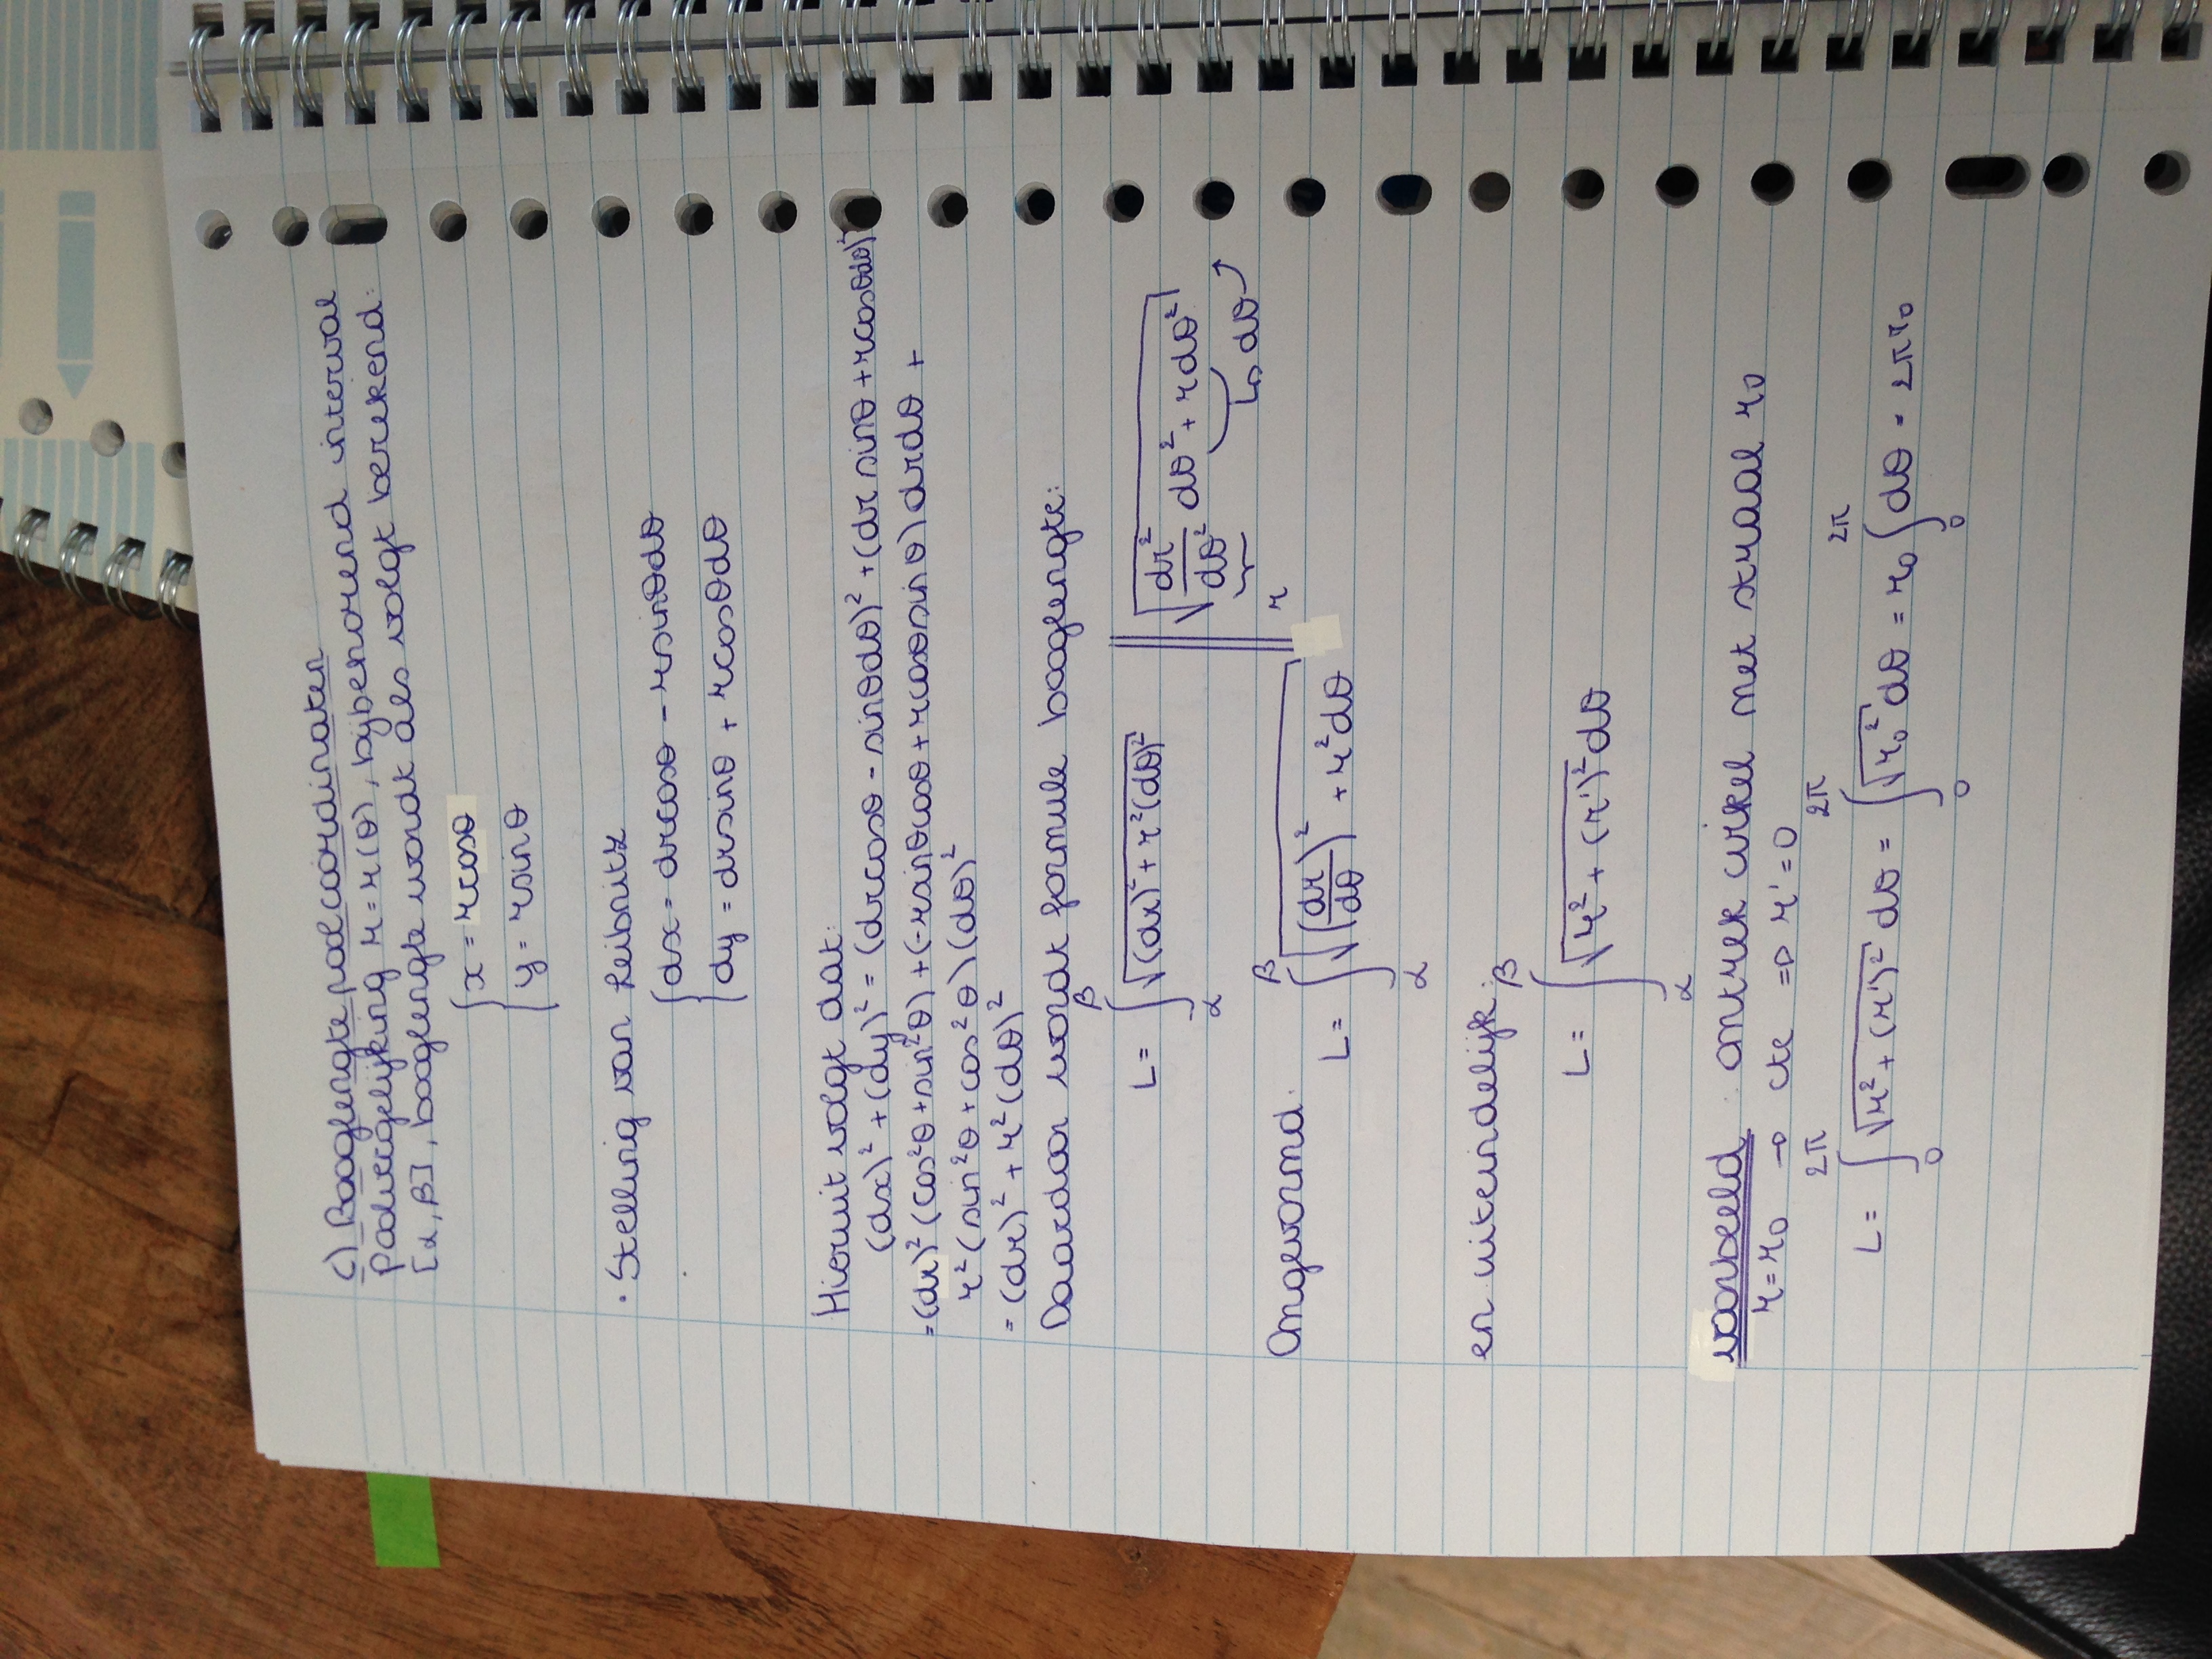 c) Booglengte poolcoördinaten
Poolvergelijking r = r(θ), bijbehorend interval
[α, β], booglengte wordt als volgt berekend:
{ x = r cosθ
{ y = r sinθ
· Stelling van Leibnitz
{ dx = dr cosθ - r sinθdθ
{ dy = dr sinθ + r cosθdθ
Hieruit volgt dat:
(dx)² + (dy)² = (dr cosθ - sinθdθ)² + (dr sinθ + r cosθdθ)²
= (dr)² (cos²θ + sin²θ) + (-r sinθcosθ + r cosθ sinθ) dr dθ +
r² (sin²θ + cos²θ) (dθ)²
= (dr)² + r² (dθ)²
Daardoor wordt formule booglengte:
L = ∫_α^β √((dr)² + r²(dθ)²) || √(dr²/dθ² dθ² + r dθ²)
↳ dθ
r
Omgevormd:
L = ∫_α^β √((dr/dθ)² + r² dθ)
en uiteindelijk:
L = ∫_α^β √(r² + (r')²) dθ
voorbeeld : omtrek cirkel met straal r₀
r = r₀ → cte => r' = 0
L = ∫_0^2π √(r² + (r')²) dθ = ∫_0^2π √(r₀²) dθ = r₀ ∫_0^2π dθ = 2π r₀